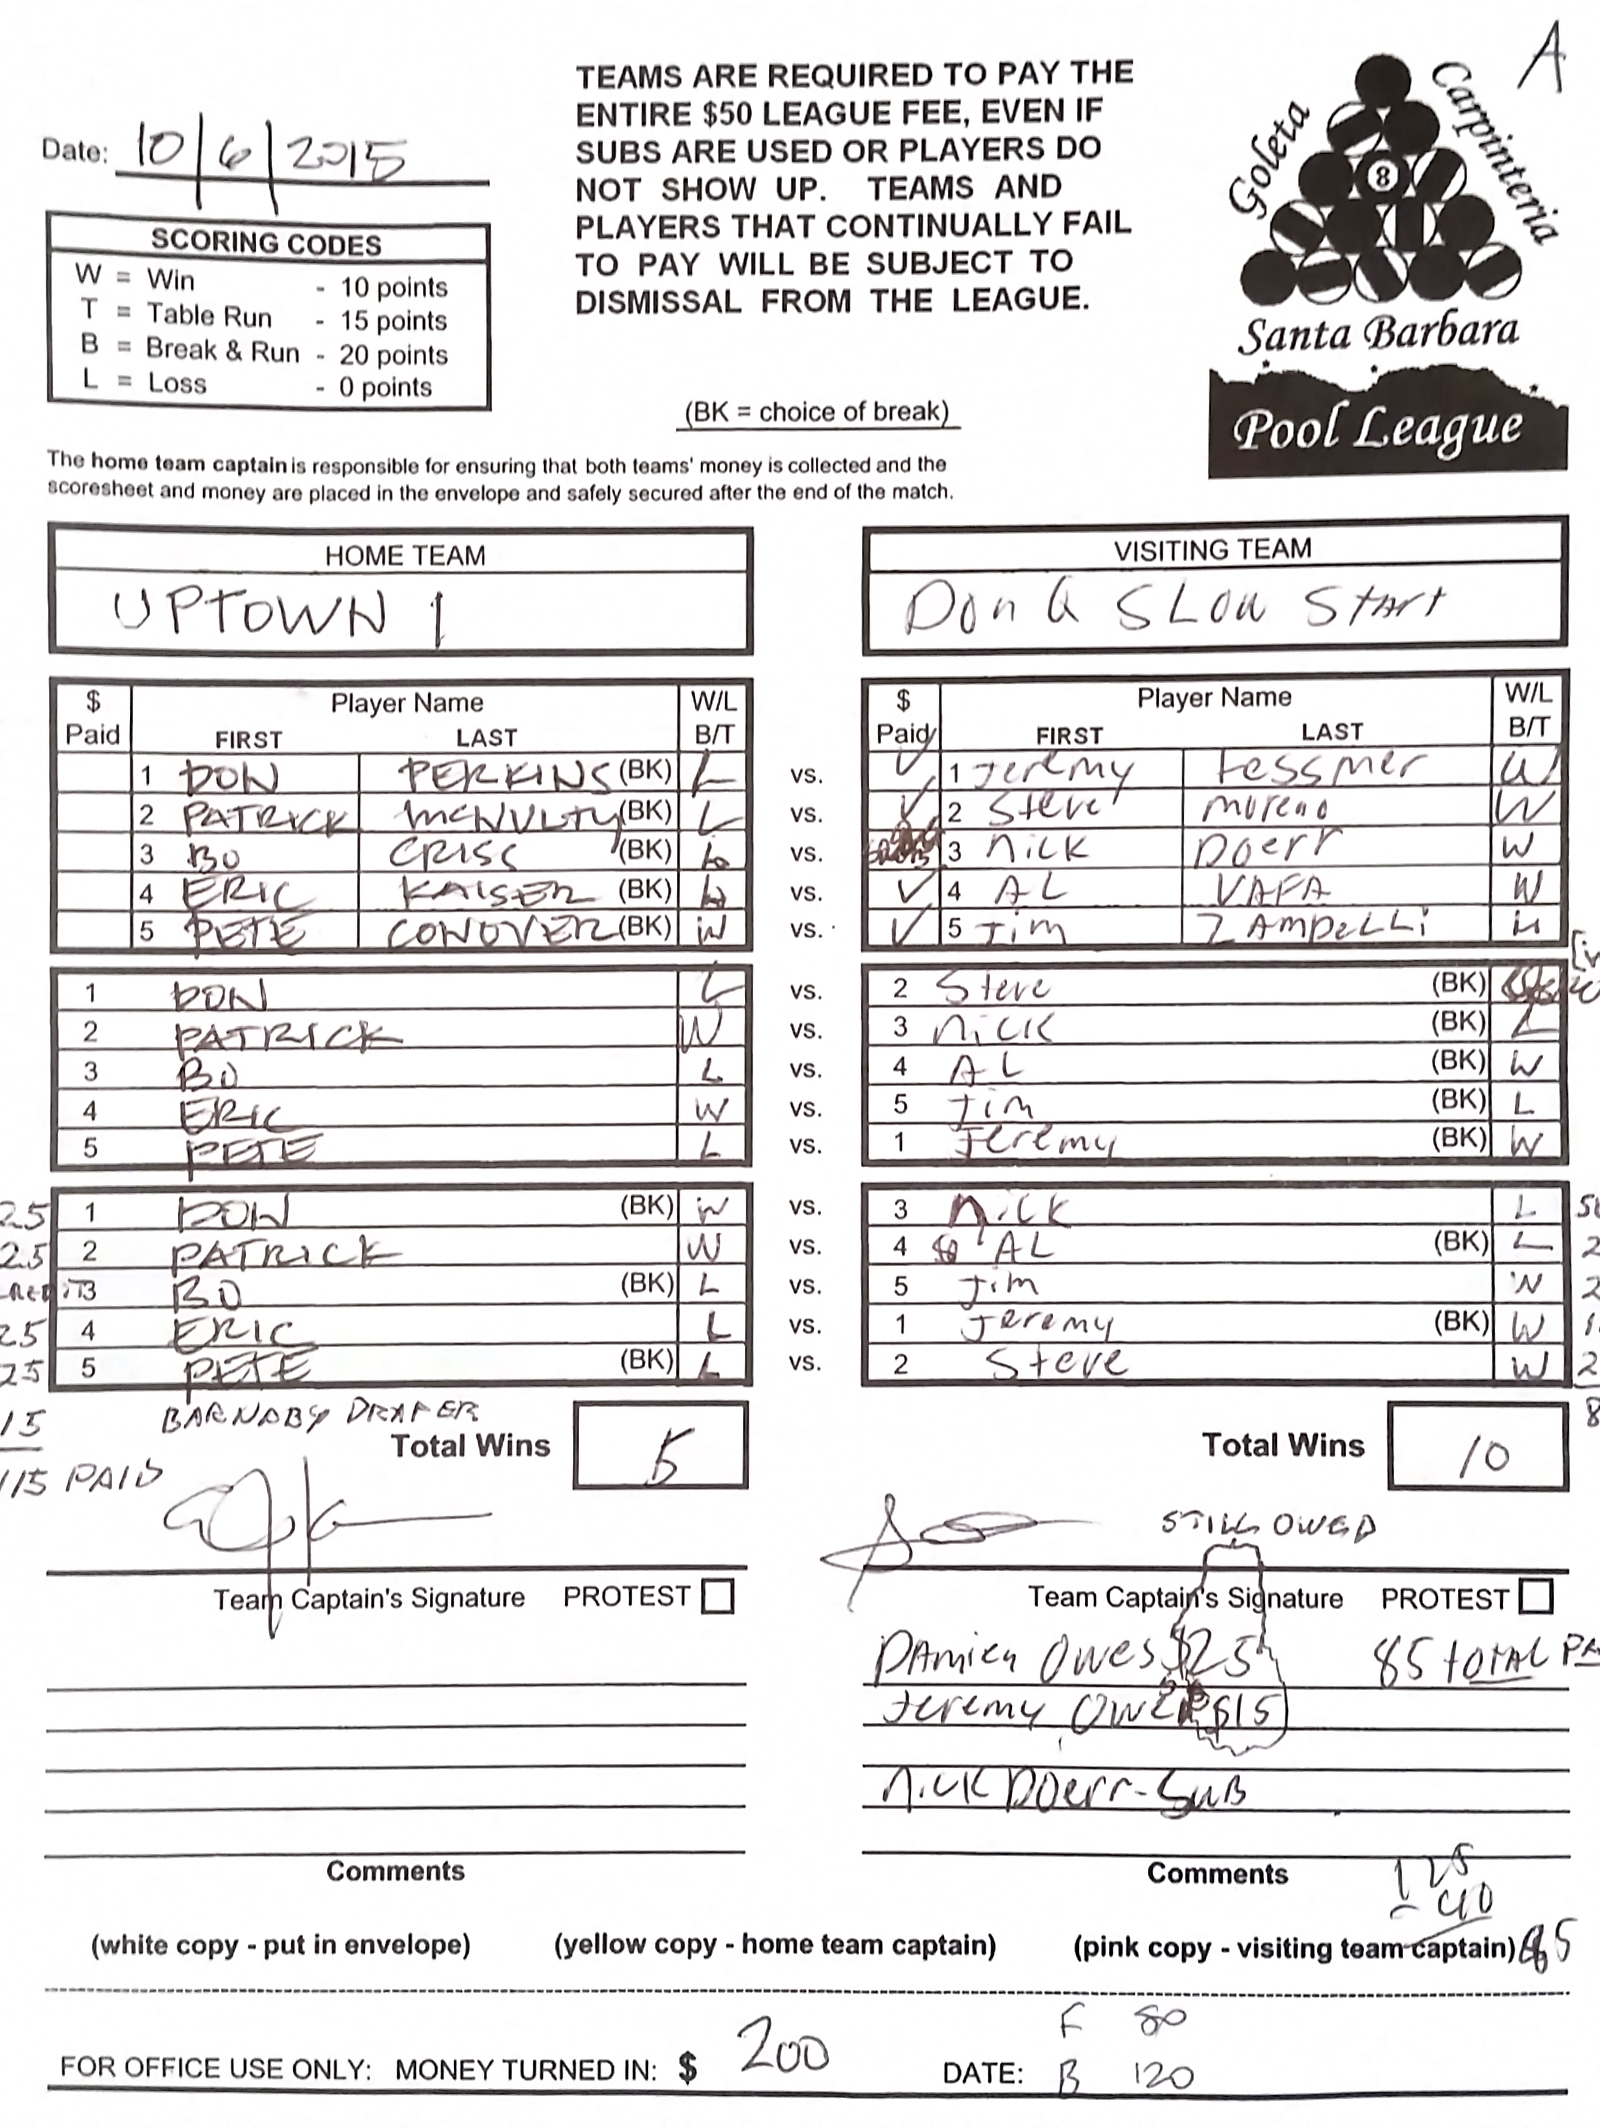 A
TEAMS ARE REQUIRED TO PAY THE
ENTIRE $50 LEAGUE FEE, EVEN IF
SUBS ARE USED OR PLAYERS DO
NOT SHOW UP. TEAMS AND
PLAYERS THAT CONTINUALLY FAIL
TO PAY WILL BE SUBJECT TO
DISMISSAL FROM THE LEAGUE.
Date: 10/6/2015
SCORING CODES
W = Win - 10 points
T = Table Run - 15 points
B = Break & Run - 20 points
L = Loss - 0 points
(BK = choice of break)
Goleta
Carpinteria
8
Santa Barbara
Pool League
The home team captain is responsible for ensuring that both teams' money is collected and the
scoresheet and money are placed in the envelope and safely secured after the end of the match.
HOME TEAM VISITING TEAM
UPTOWN 1 Don Q SLOW START
$ Player Name W/L $ Player Name W/L
Paid FIRST LAST B/T Paid FIRST LAST B/T
1 DON PERKINS (BK) L vs. ✓ 1 Jeremy Fessmer W
2 PATRICK MCNULTY (BK) L vs. ✓ 2 Steve moreno W
3 BO CRISS (BK) L vs. 3 NICK DOERR W
4 ERIC KAISER (BK) vs. ✓ 4 AL VAFA W
5 PETE CONOVER (BK) W vs. ✓ 5 Jim ZAMPELLI
1 DON L vs. 2 Steve (BK)
2 PATRICK W vs. 3 NICK (BK) L
3 BO L vs. 4 AL (BK) W
4 ERIC W vs. 5 Jim (BK) L
5 PETE L vs. 1 Jeremy (BK) W
25 1 DON (BK) W vs. 3 NICK L
25 2 PATRICK W vs. 4 AL (BK) L
3 BO (BK) L vs. 5 Jim W
25 4 ERIC L vs. 1 Jeremy (BK) W
25 5 PETE (BK) L vs. 2 Steve W
15 BARNABY DRAPER
Total Wins 5 Total Wins 10
115 PAID
STILL OWED
Team Captain's Signature PROTEST Team Captain's Signature PROTEST
DAMIEN OWES $25 85 TOTAL
Jeremy OWES $15
NICK DOERR-SUB
Comments Comments
125
- 40
85
(white copy - put in envelope) (yellow copy - home team captain) (pink copy - visiting team captain)
F 80
FOR OFFICE USE ONLY: MONEY TURNED IN: $ 200 DATE: B 120